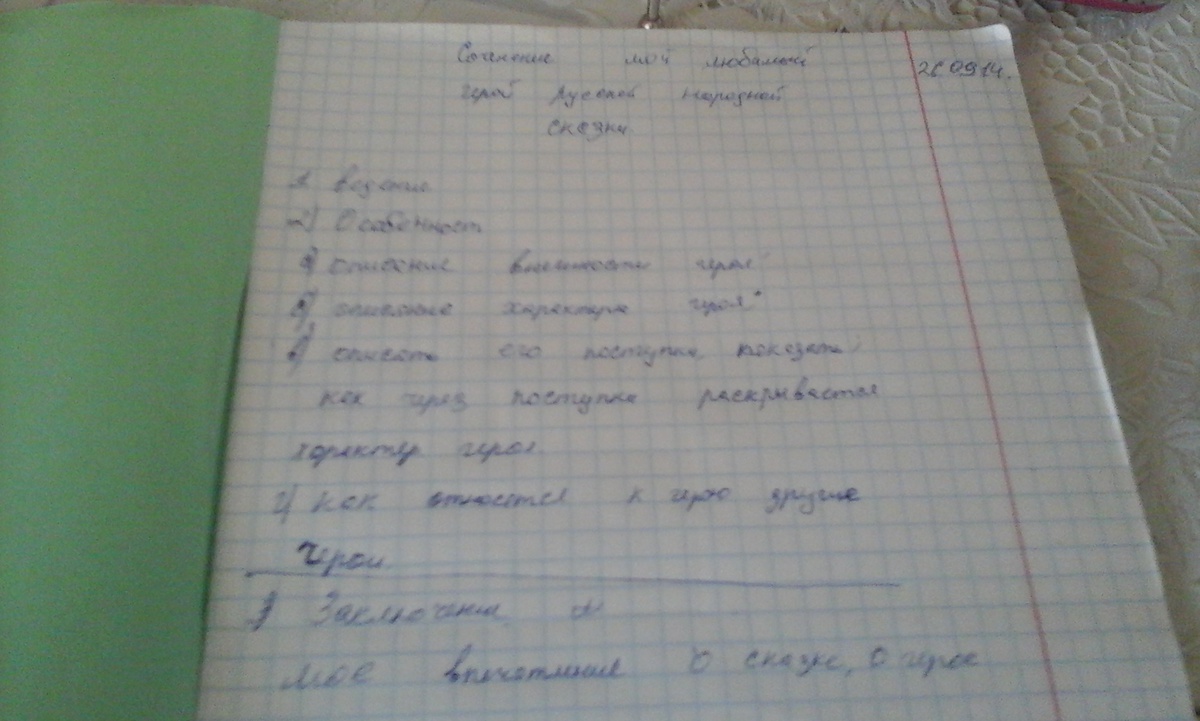 Сочинение мой любимый
26.09.14.
герой русской народной
сказки
1 ведение
2) Особенност
а) описание внешности героя
б) описание характера героя
в) описать его поступки, показать
как через поступки раскрывается
характер героя
г) как относятся к герою другие
герои
3) Заключение
моё впечатление о сказке, о герое